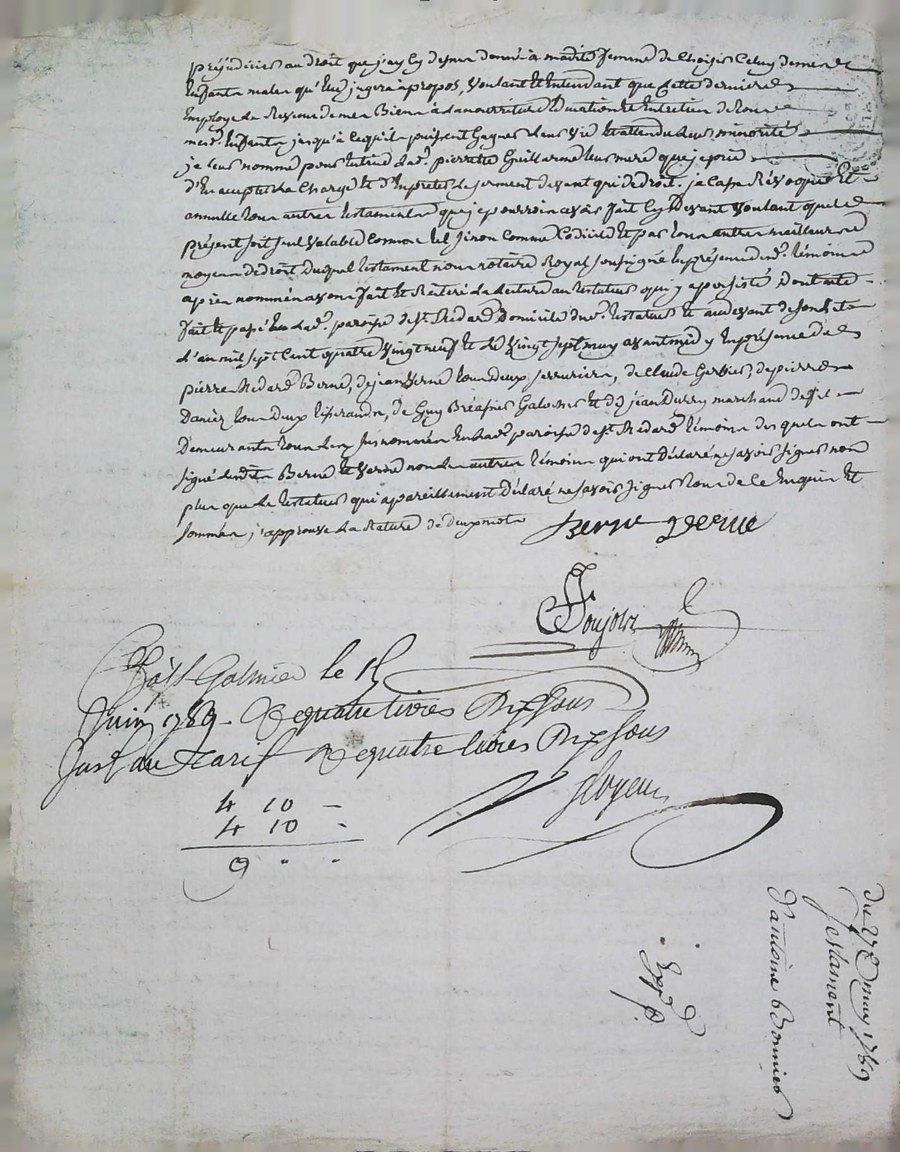 préjudicier au droit que j'ay cy dessus donné à madite femme de choisir celuy de mes
enfants males qu'elle jugera apropos, voulant et entendant que cette derniere
employe les revenus de mes Biens à la nourriture Education et entretien de tous
mesd. enfants jusqu'à ce qu'ils puissent gagner leur vie et attendu leur minorité
je leur nomme pour tutrice lad. pierrette Guillarme leur mere que je prie
d'en accepter la charge et d'en preter le serment devant qui de droit. je casse Révoque et
annulle tous autres testaments que je pourrois avoir fait cy devant voulant que le
présent soit seul valable comme tel sinon comme Codicile et par tous autres meilleurs
moyens de droit duquel testament nous notaire Royal soussigné en présence des témoins
apres nommés avons fait et Réitéré la lecture au testateur qui y a persisté dont acte
fait et passé en lad. paroisse de St Medard Domicile du testateur et audevant de son lit
l'an mil sept cent quatre vingt neuf et le vingt sept may avant midy en présence de
pierre Medard Berne, de jean Verne tous deux serruriers, de Claude Gerbier, de pierre
Danier tous deux tisserands, de Guy Bréasier Galocher et de jean Durry marchand de fil
Demeurants tous les susnommés en lad. paroisse de St Medard témoins desquels ont
signé lesdits Berne et Verne non les autres témoins qui ont déclaré ne savoir signer non
plus que le testateur qui a pareillement déclaré ne savoir signer tous de ce enquis et
sommés, j'approuve la rature de deux mots
Berne Verne
Soujon
à St Galmier le 15
Juin 1789. R quatre livres Dix sous
Insé au Tarif R quatre livres Dix sous
4 10 -
4 10 -
9 " "
du 27 may 1789
Testament
d'antoine Bonnier
Exp d